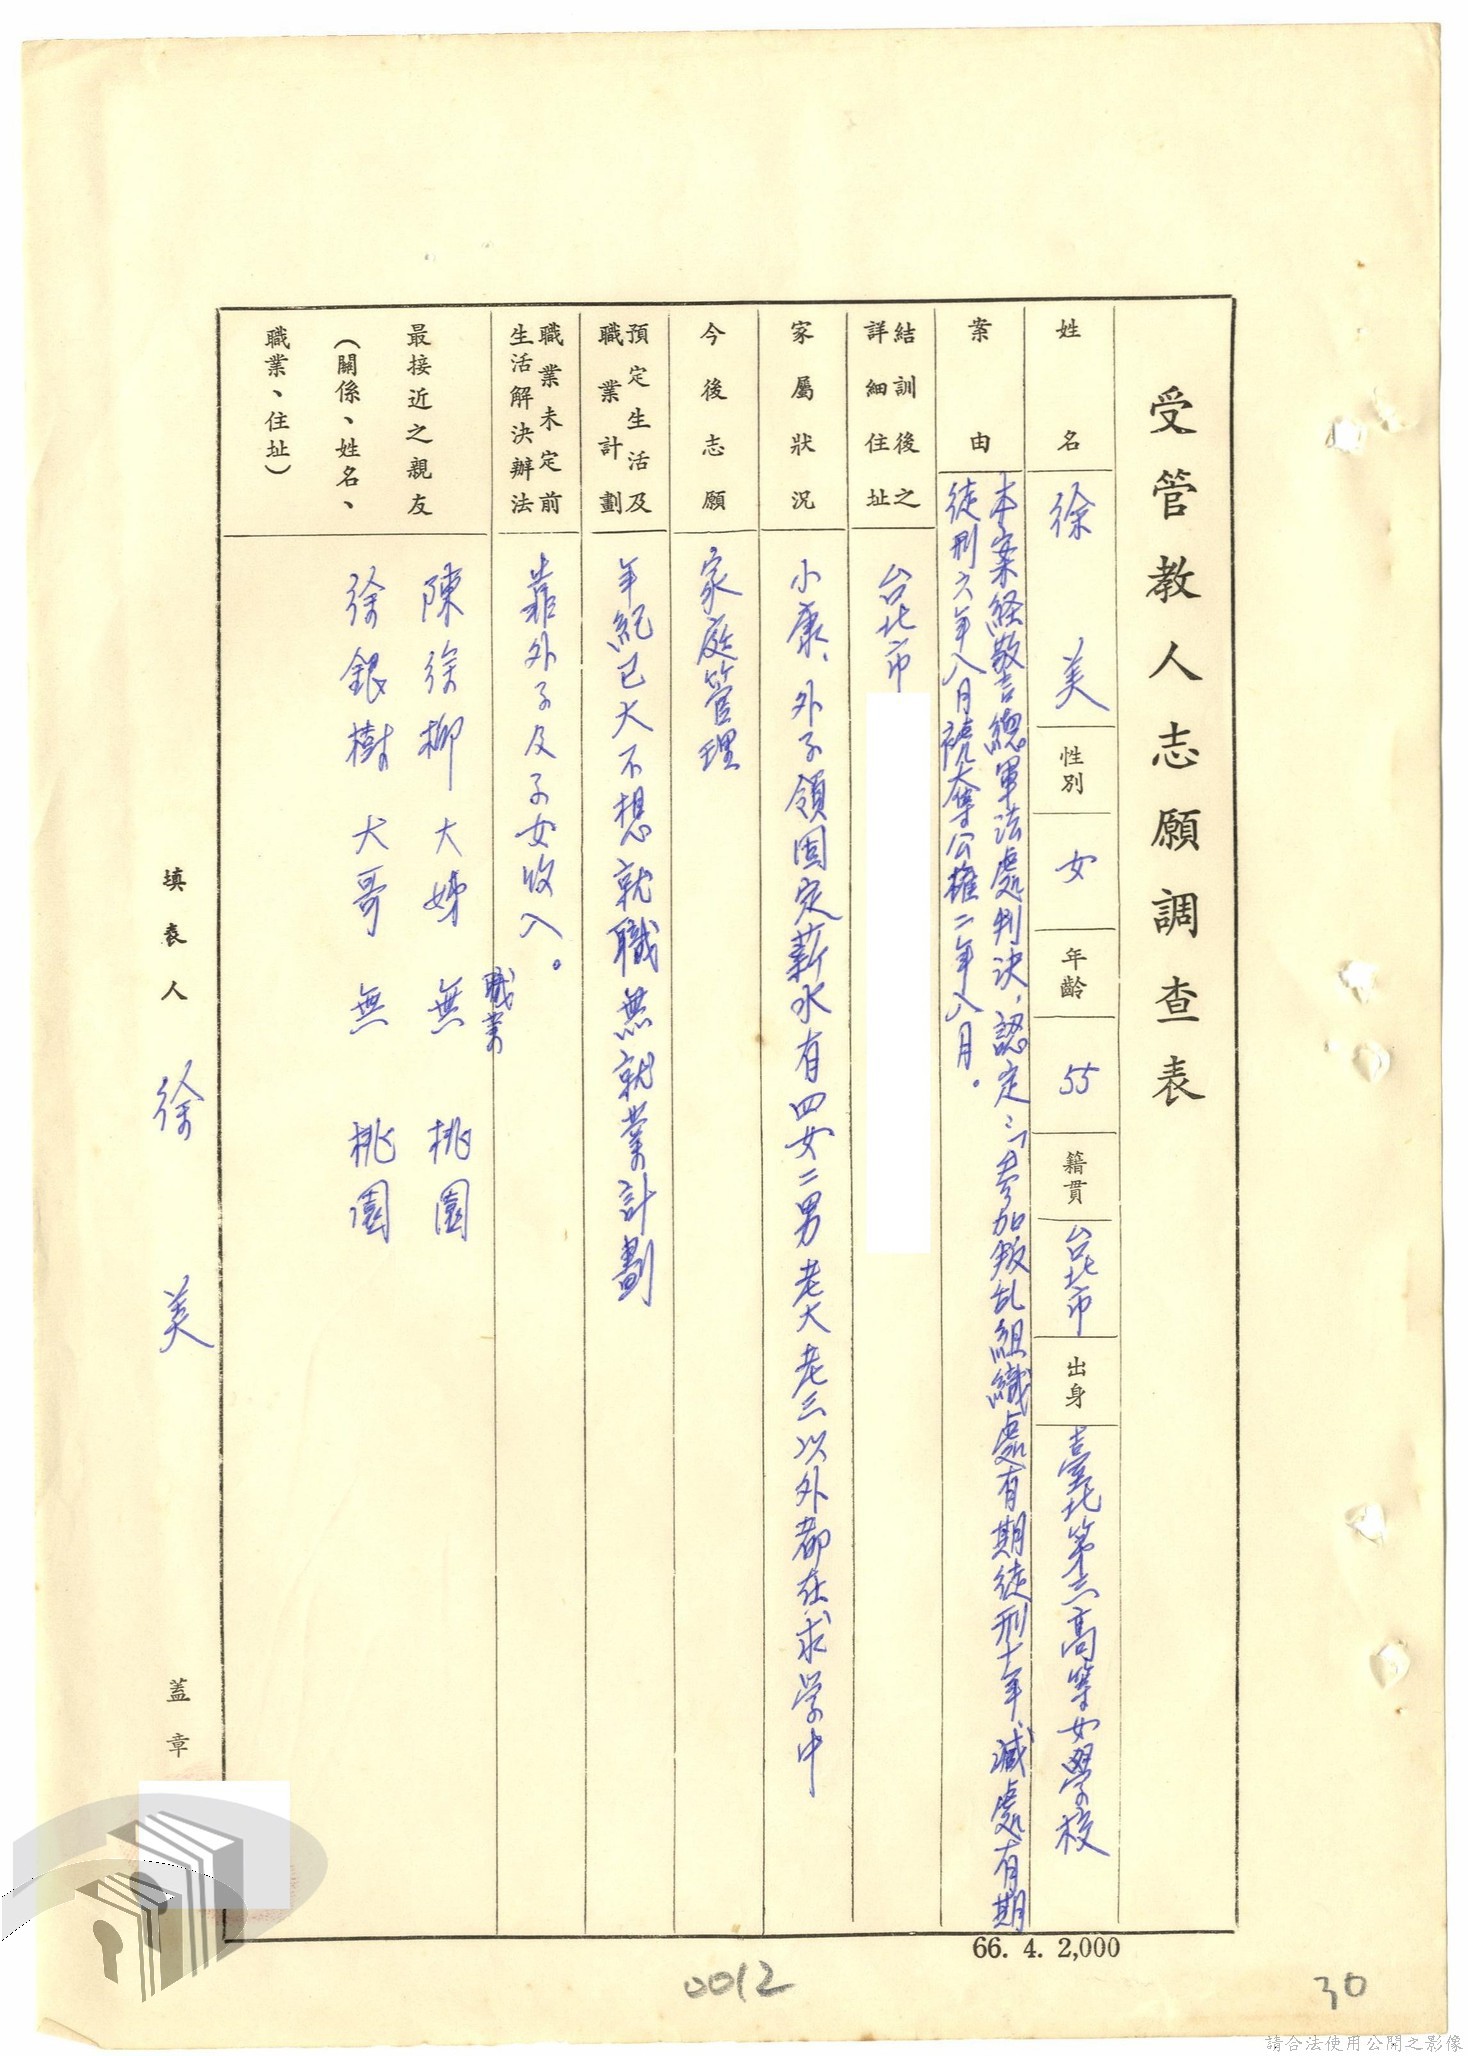 受管教人志願調查表
姓名
徐美
性別
女
年齡
55
籍貫
台北市
出身
臺北第三高等女學校
案由
本案経警總軍法處判決，認定：「參加叛乱組織處有期徒刑十年，減處有期
徒刑六年八月褫奪公權二年八月。
結訓後之
詳細住址
台北市
家屬狀況
小康，外子領固定薪水有四女二男老大老三以外都在求学中
今後志願
家庭管理
預定生活及
職業計劃
年紀已大不想就職無就業計劃
職業未定前
生活解決辦法
靠外子及子女收入。
最接近之親友
（關係、姓名、
職業、住址）
職業
陳徐柳 大姊 無 桃園
徐銀樹 大哥 無 桃園
填表人 徐美 蓋章
66. 4. 2,000
0012
30
請合法使用公開之影像